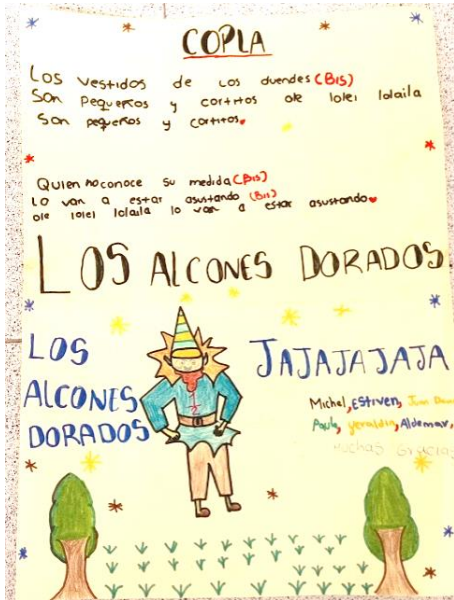 COPLA
Los vestidos de los duendes (Bis)
Son pequeños y cortitos ole lolei lolaila
Son pequeños y cortitos.
Quien no conoce su medida (Bis)
Lo van a estar asustando (Bis)
ole lolei lolaila lo van a estar asustando
LOS ALCONES DORADOS
LOS
ALCONES
DORADOS
JAJAJAJAJA
Michel, Estiven, Juan
Paula, yeraldin, Aldemar,
Muchas Gracias